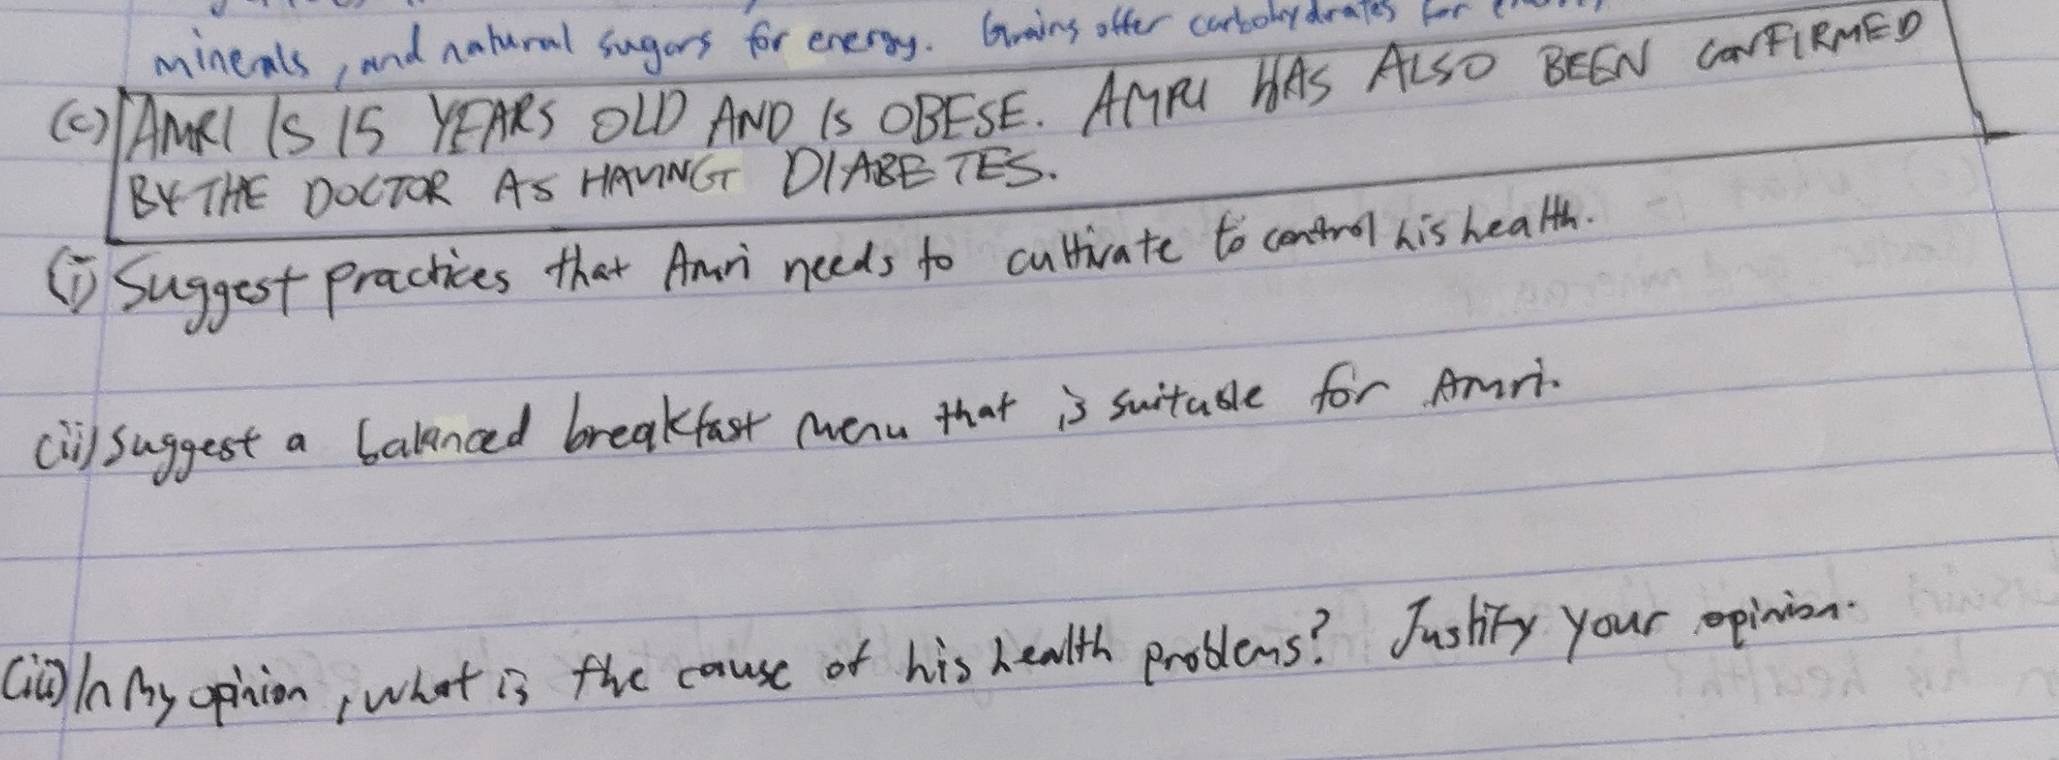 minerals, and natural sugars for energy. Grains offer carbohydrates for
(c) AMRI IS 15 YEARS OLD AND IS OBESE. AMRI HAS ALSO BEEN CONFIRMED
BY THE DOCTOR AS HAVING DIABETES.
(i) Suggest practices that Amri needs to cultivate to control his health.
(ii) suggest a balanced breakfast menu that is suitable for Amri.
(iii) In My opinion, what is the cause of his health problems? Justify your opinion.